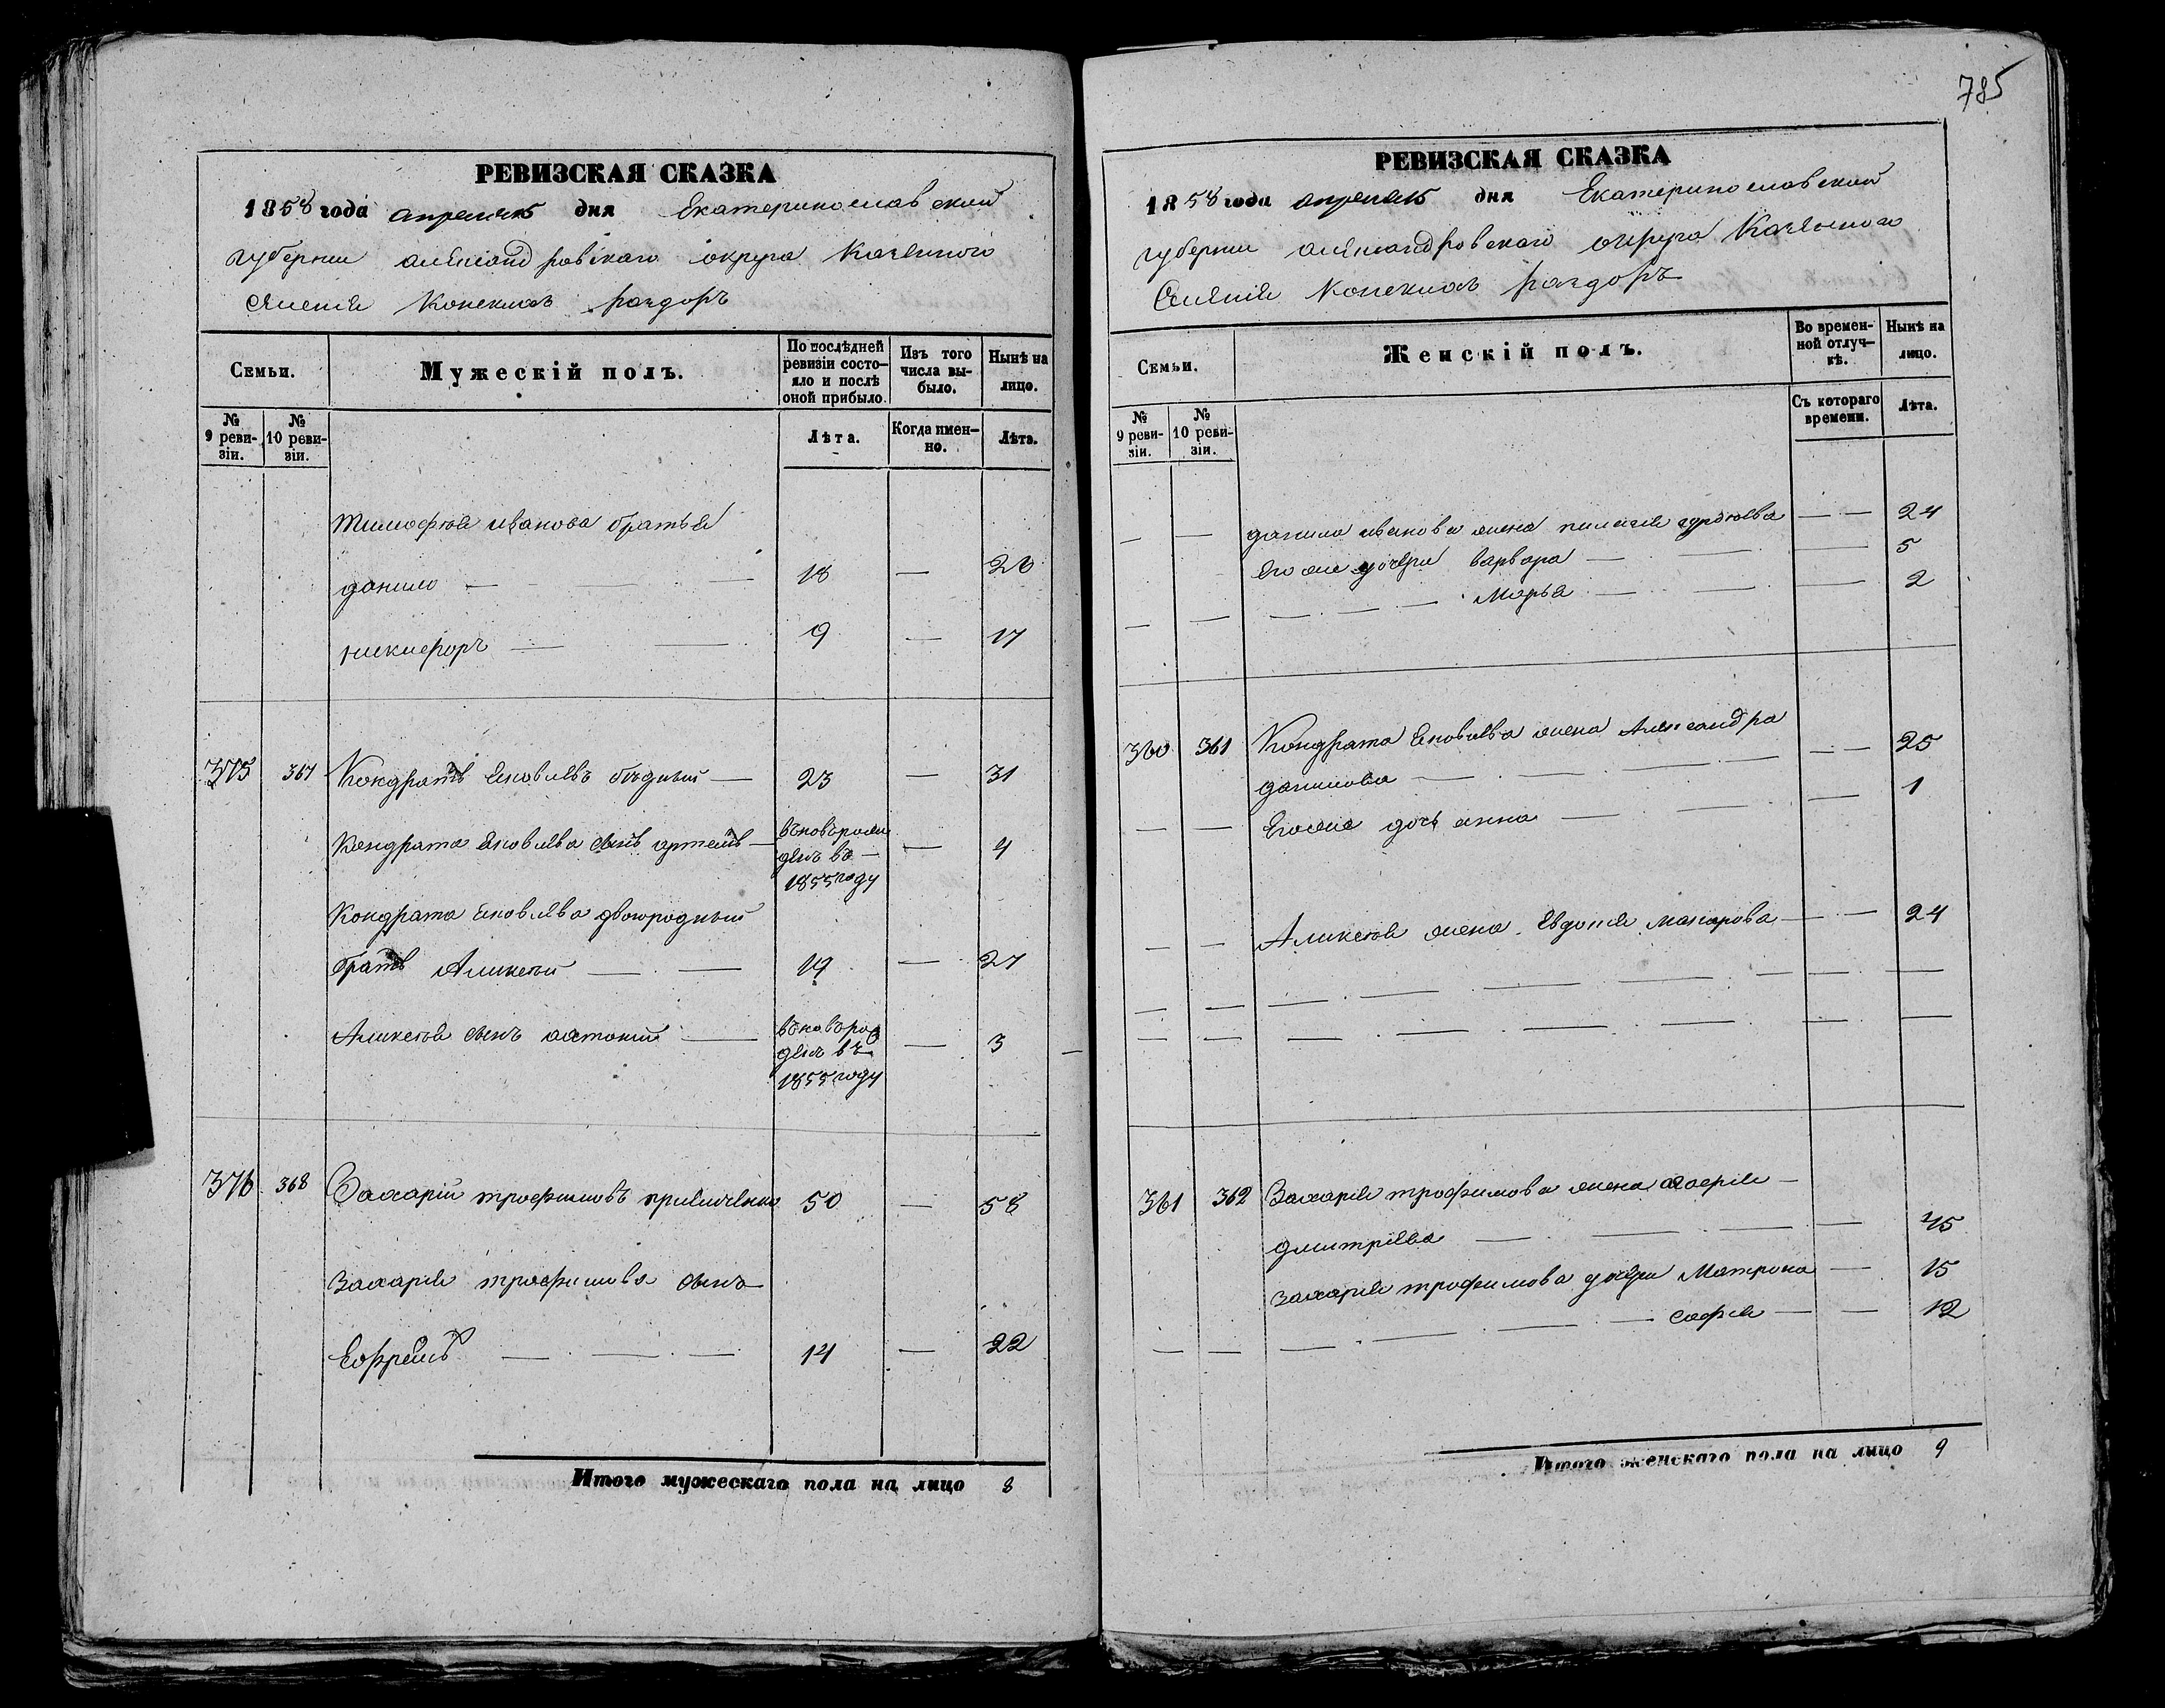 785
РЕВИЗСКАЯ СКАЗКА
1858 года апреля 15 дня Екатеринославской
губернии александровскаго округа Казенного
селения Конскихъ раздоръ
Семьи.
Мужескій полъ.
По послѣдней ревизіи состояло и послѣ оной прибыло.
Изъ того числа выбыло.
Нынѣ на лицо.
№ 9 ревизіи.
№ 10 ревизіи.
Лѣта.
Когда именно.
Лѣта.
Тимофея иванова братья
данило — 18 — 26
никифоръ — 9 — 17
375 367 Кондратъ Яковлевъ бѣдный — 23 — 31
Кондрата Яковлева сынъ артемъ — вновьрожденъ въ 1855 году — 4
Кондрата Яковлева двоюродный
братъ Аликсей — 19 — 27
Аликсея сынъ антоний — вновьрожденъ въ 1855 году — 3
376 368 Захарий трофимовъ 50 — 58
Захария трофимова сынъ
Ефремъ — 14 — 22
Итого мужескаго пола на лицо 8
РЕВИЗСКАЯ СКАЗКА
1858 года апреля 15 дня Екатеринославской
губернии александровскаго округа Казенного
Селения Конскихъ раздоръ
Семьи.
Женскій полъ.
Во временной отлучкѣ.
Нынѣ на лицо.
№ 9 ревизіи.
№ 10 ревизіи.
Съ котораго времени.
Лѣта.
данила иванова жена пилагея — 24
его же дочери варвара — 5
Марья — 2
360 361 Кондрата Яковлева жена Александра
данилова — 25
Его же дочь анна — 1
Аликсея жена Евдокия макарова — 24
361 362 Захария трофимова жена агафия —
дмитриева — 45
захария трофимова дочери Матрона — 15
софия — 12
Итого женскаго пола на лицо 9